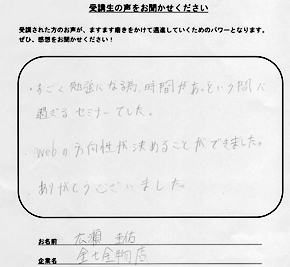 受講生の声をお聞かせください
受講された方のお声が、ますます磨きをかけて邁進していくためのパワーとなります。
ぜひ、感想をお聞かせください!
・すごく勉強になる為、時間があっという間に
過ぎるセミナーでした。
・webの方向性が決めることができました。
・ありがとうございました。
お名前 広瀬
企業名 金七金物店